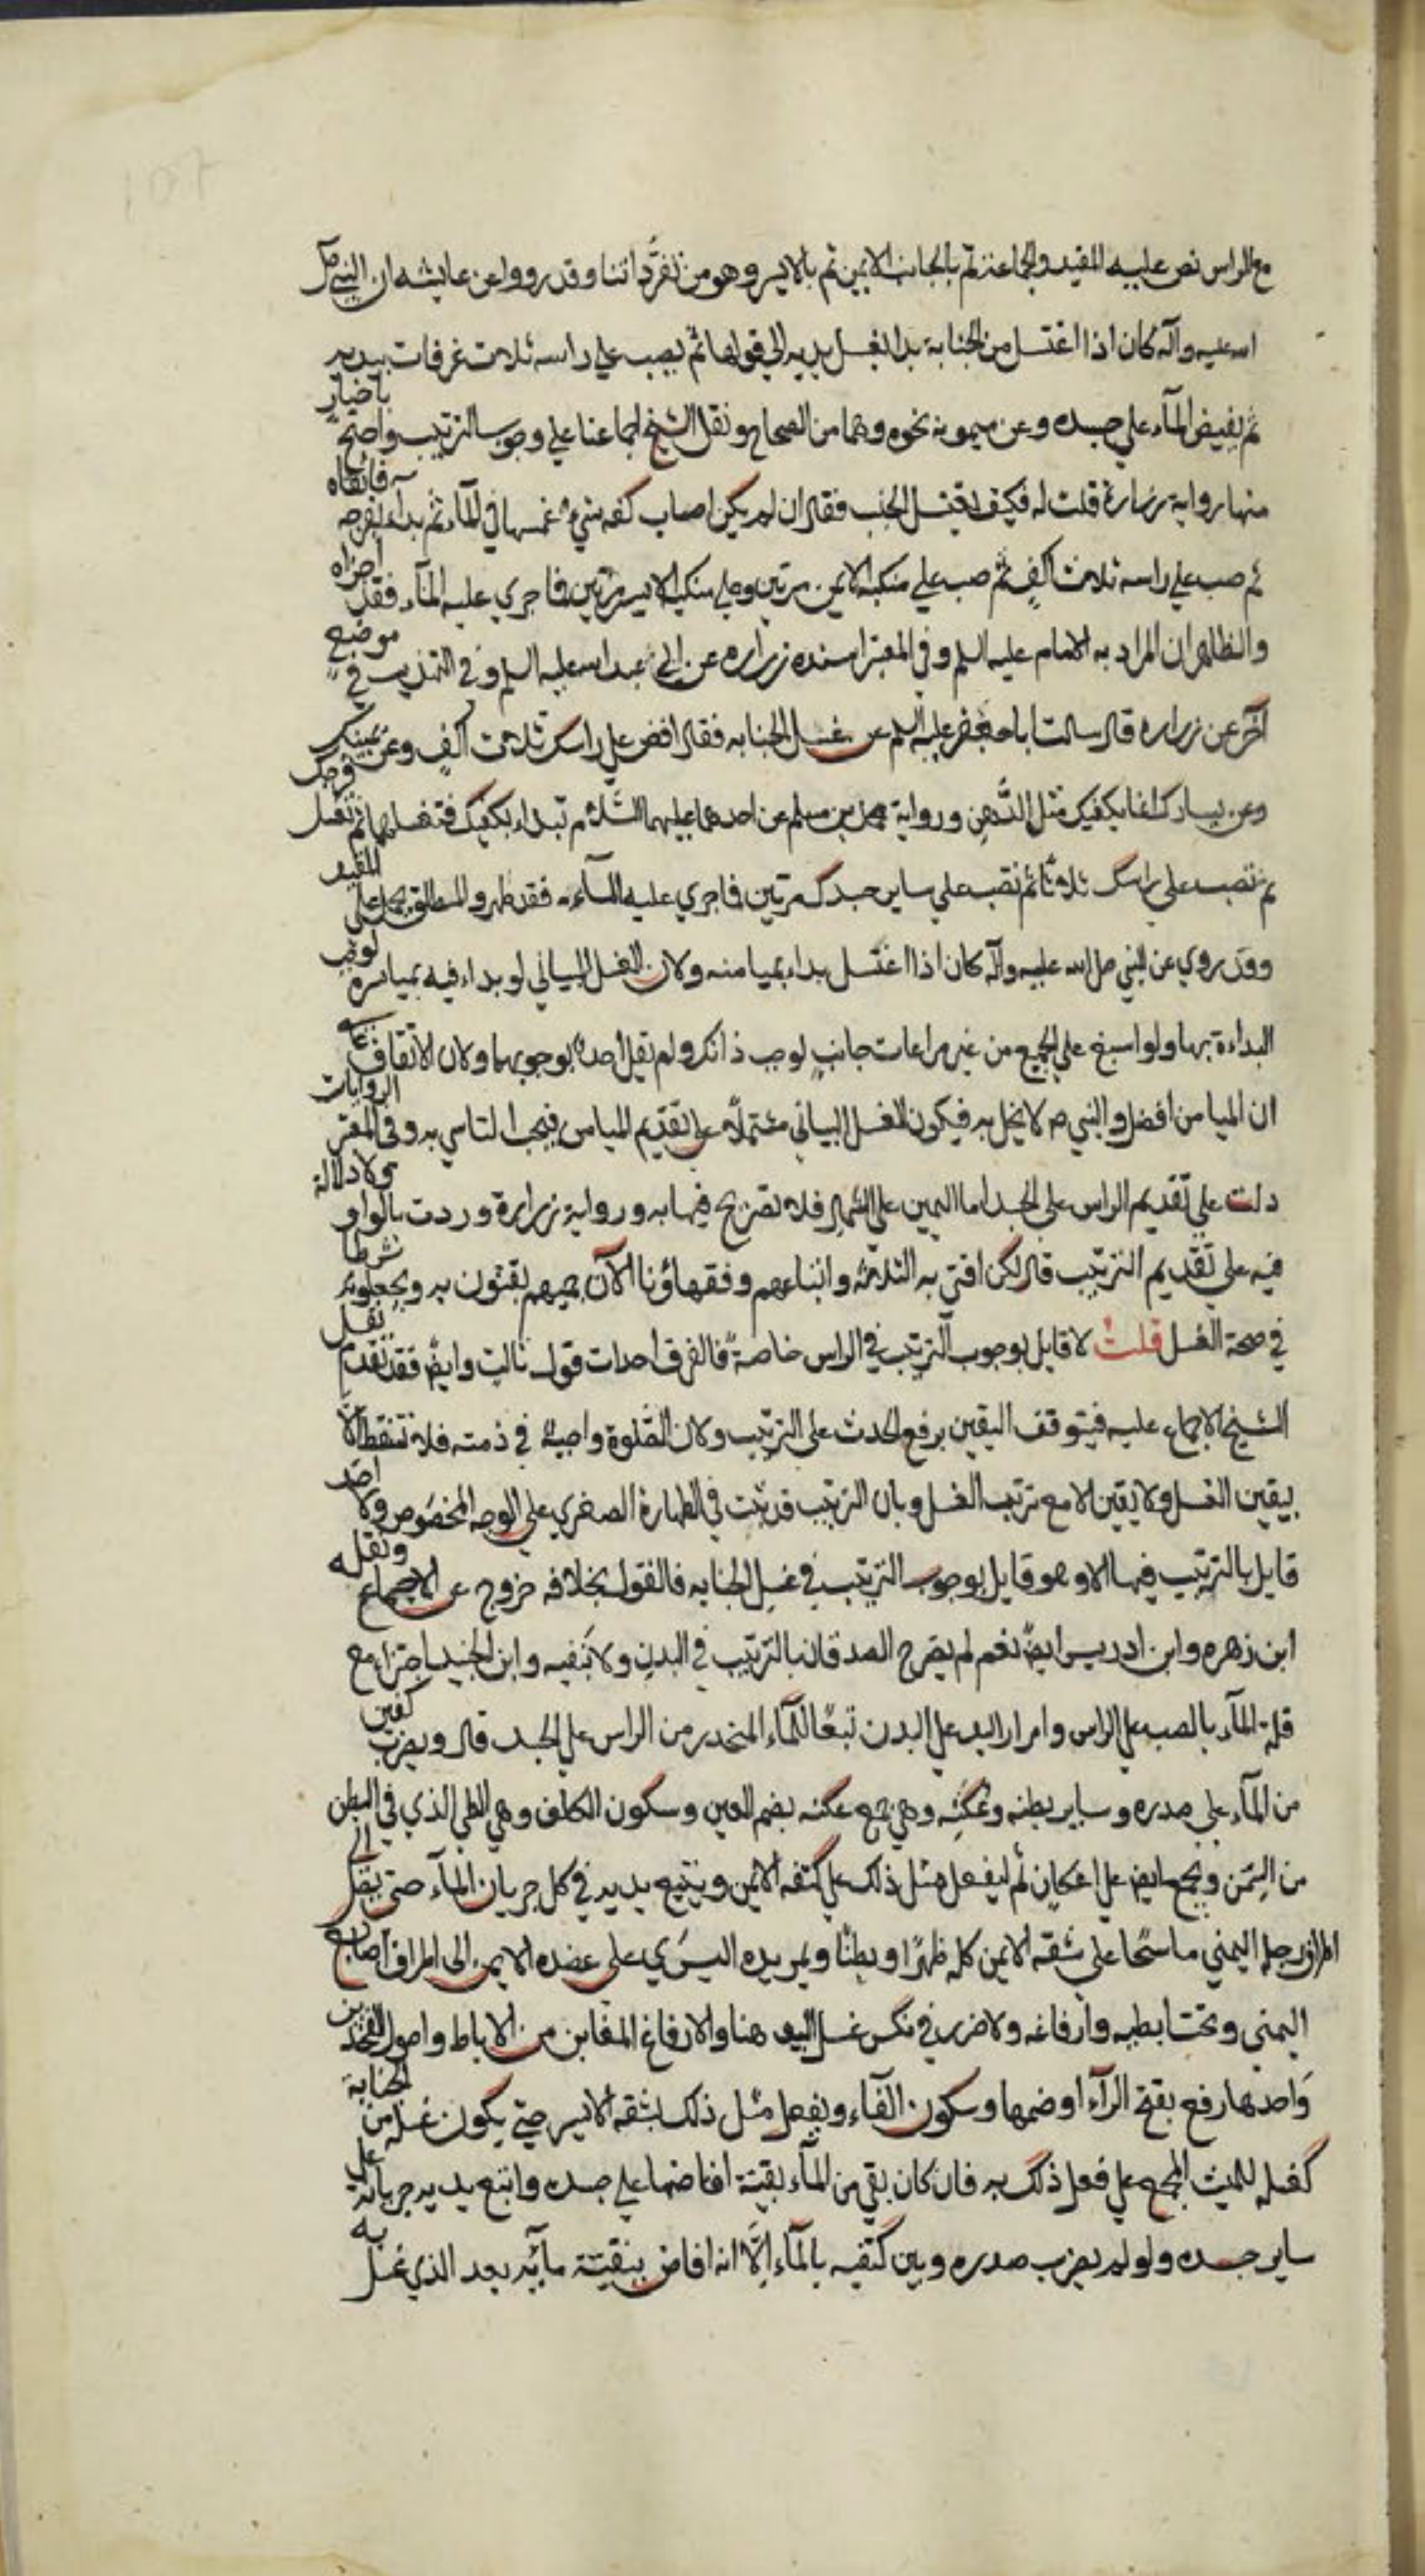 مع الراس نص عليه المفيد والجماعة ثم بالجانب الايمن ثم بالايسر وهو من تفرداتنا وقد رووا عن عايشه ان النبي صلى
الله عليه وآله كان اذا اغتسل من الجنابة بدا بغسل يديه الي قولها ثم يصب علي راسه ثلاث غرفات بيديه
ثم يفيض المآء علي جسده وعن ميمونه نحوه وهما من الصحاح ونقل الشيخ اجماعنا علي وجوب الترتيب واحتج باخبار
منها رواية زرارة قلت له فكيف يغتسل الجنب فقال ان لم يكن اصاب كفه شيء غمسها في المآء ثم بداء بفرجه فانقاه
ثم صب علي راسه ثلاث اكف ثم صب علي منكبه الايمن مرتين وعلي منكبه الايسر مرتين فما جري عليه المآء فقد اجزاه
والظاهر ان المراد به الامام عليه السلم وفي المعتبر اسنده زراره عن ابي عبد الله عليه السلم وفي التهذيب في موضع
آخر عن زراره قال سالت ابا جعفر عليه السلم عن غسل الجنابه فقال افض علي راسك ثلاث اكف وعن يمينك
وعن يسارك انما يكفيك مثل الدهن ورواية محمد بن مسلم عن احدهما عليهما السلام تبداء بكفيك فتغسلهما ثم تغسل فرجك
ثم تصب علي راسك ثلاثا ثم تصب علي ساير جسدك مرتين فما جري عليه المآء فقد طهر والمطلق يحمل علي المقيد
وقد روي عن النبي صلى الله عليه وآله كان اذا اغتسل بداء بميامنه ولان الغسل البياني لو بداء فيه بمياسره لوجب
البداءة بها ولو اسبغ علي الجميع من غير مراعات جانب لوجب ذلك ولم يقل احد بوجوبهما ولان الاتفاق علي
ان الميامن افضل والنبي ص لا يخل به فيكون الغسل البياني مشتملا علي تقديم الميامن فيجب التاسي به وفي المعتبر الروايات
دلت علي تقديم الراس علي الجسد اما اليمين علي الشمال فلا تصريح فيها به ورواية زرارة وردت بالواو ولا دلالة
فيه علي تقديم الترتيب قال لكن افتي به الثلاثه واتباعهم وفقهاؤنا الآن جميعهم يفتون به ويجعلونه شرطا
في صحة الغسل قلت لا قايل بوجوب الترتيب في الراس خاصة فالفرق احداث قول ثالث وايضا فقد تقدم نقل
الشيخ الاجماع عليه فيتوقف اليقين برفع الحدث علي الترتيب ولان الصلوة واجبة في ذمته فلا تسقط الا
بيقين الغسل ولا يقين الا مع ترتيب الغسل وبان الترتيب قد ثبت في الطهارة الصغري علي الوجه المخصوص ولا احد
قايل بالترتيب فيها الا وهو قايل بوجوب الترتيب في غسل الجنابه فالقول بخلافه خروج عن الاجماع ونقله
ابن زهره وابن ادريس ايضا نعم لم يصرح الصدوقان بالترتيب في البدن ولا بنفيه وابن الجنيد اجتزا مع
قلة المآء بالصب علي الراس وامرار اليد علي البدن تبعا للمآء المنحدر من الراس علي الجسد قال ويضرب كفين
من المآء علي صدره وساير بطنه وعكنه وهي جمع عكنه بضم العين وسكون الكاف وهي الطي الذي في البطن
من السمن ويجمع ايضا علي اعكان ثم ليفعل مثل ذلك علي كتفه الايمن ويتبع يديه في كل جريان المآء حتى يصل الي
اطراف رجله اليمني ماسحا علي شقه الايمن كله ظهرا وبطنا ويمر يده اليسري علي عضده الايمن الي اطراف اصابعه
اليمني وتحت ابطيه وارفاغه ولا ضرر في نكس غسل اليد هنا والارفاغ المغابن من الاباط واصول الفخذين
واحدها رفغ بفتح الرآء او ضمها وسكون الفآء ويفعل مثل ذلك بشقه الايسر حتي يكون غسله من الجنابة
كغسله للميت المجمع علي فعل ذلك به فان كان بقي من المآء بقية افاضها علي جسده واتبع يديه جريانه علي
ساير جسده ولو لم يضرب صدره وبين كتفيه بالمآء الا انه افاض ببقية مآئه بعد الذي غسل به